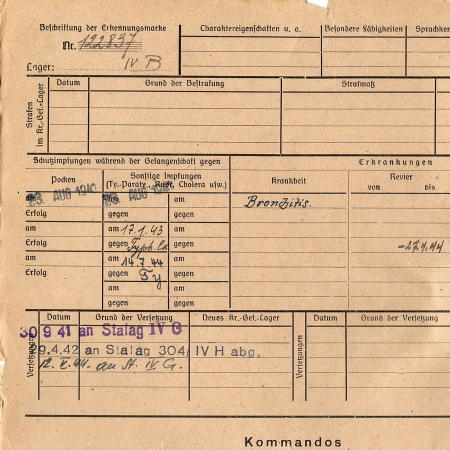 Beschriftung der Erkennungsmarke
Nr. 122837
Lager: IV B
Charaktereigenschaften u. a.
Besondere Fähigkeiten
Sprachken
Strafen im Kr.-Gef.-Lager
Datum
Grund der Bestrafung
Strafmaß
Schutzimpfungen während der Gefangenschaft gegen
Erkrankungen
Pocken
Sonstige Impfungen
(Ty.-Paraty., Ruhr, Cholera usw.)
Krankheit
Revier
von bis
23. AUG 1941
23. AUG 194
am
Bronchitis.
Erfolg gegen gegen
am am 17.1.43 am
Erfolg gegen Typh. gegen
-27.4.44
am am 14.7.44 am
Erfolg gegen Ty gegen
am am
gegen gegen
Versetzungen
Datum
Grund der Versetzung
Neues Kr.-Gef.-Lager
Versetzungen
Datum
Grund der Versetzung
30 9 41 an Stalag IV G
29.4.42 an Stalag 304/ IV H abg.
12. V. 44. an St. IV G.
Kommandos